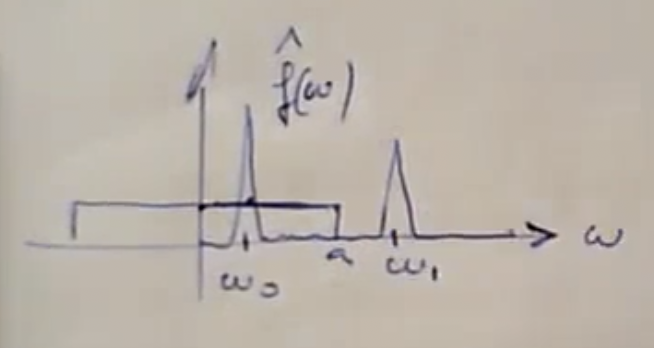 f̂(ω)
ω
ω₀ a ω₁